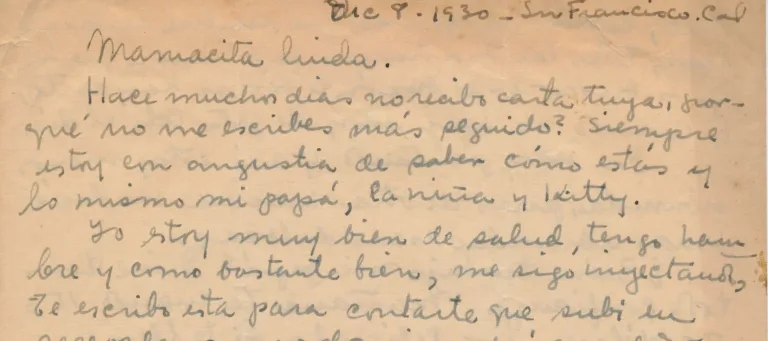 Dic 8 - 1930 - Sn Francisco. Cal
Mamacita linda.
Hace muchos dias no recibo carta tuya, por-
qué no me escribes más seguido? Siempre
estoy con angustia de saber cómo estás y
lo mismo mi papá, la niña y Kitty.
Yo estoy muy bien de salud, tengo ham
bre y como bastante bien, me sigo inyectando,
Te escribo esta para contarte que subí en